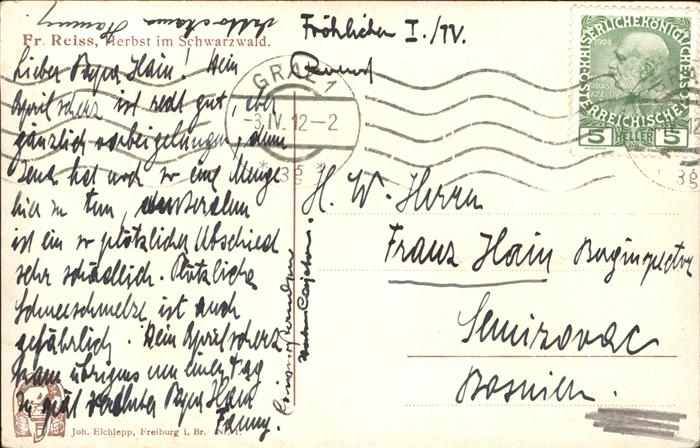 Fröhlichen I./IV.
Fr. Reiss, Herbst im Schwarzwald.
Lieber Papa Hain! Dein
Aprilscherz ist recht gut, aber
gänzlich vorbeigelungen, denn
hat noch so eine Menge
hier zu tun, ausserdem
ist ein so plötzlicher Abschied
sehr schädlich. Plötzliche
Schneeschmelze ist auch
gefährlich. Dein Aprilscherz
kam übrigens um einen Tag
zu spät Papa Hain
Fanny.
GRAZ 1
-3.IV.12-2
* 3g *
1908
KAISERLICHE KÖNIGLICHE
ÖSTERREICHISCHE
5 HELLER 5
H. W. Herrn
Franz Hain Berginspector
Semizovac
Bosnien.
Joh. Elchlepp, Freiburg i. Br.